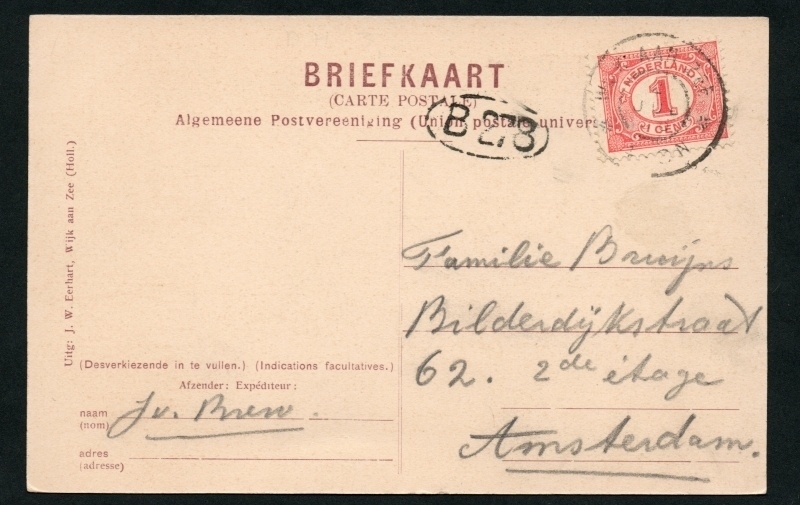 BRIEFKAART
(CARTE POSTALE)
Algemeene Postvereeniging (Union postale univers
B 278
NEDERLAND
1
CENT
Uitg: J. W. Eerhart, Wijk aan Zee (Holl.)
Familie Bruijns
Bilderdijkstraat
62. 2de étage
Amsterdam.
(Desverkiezende in te vullen.) (Indications facultatives.)
Afzender: Expéditeur:
naam
(nom)
adres
(adresse)